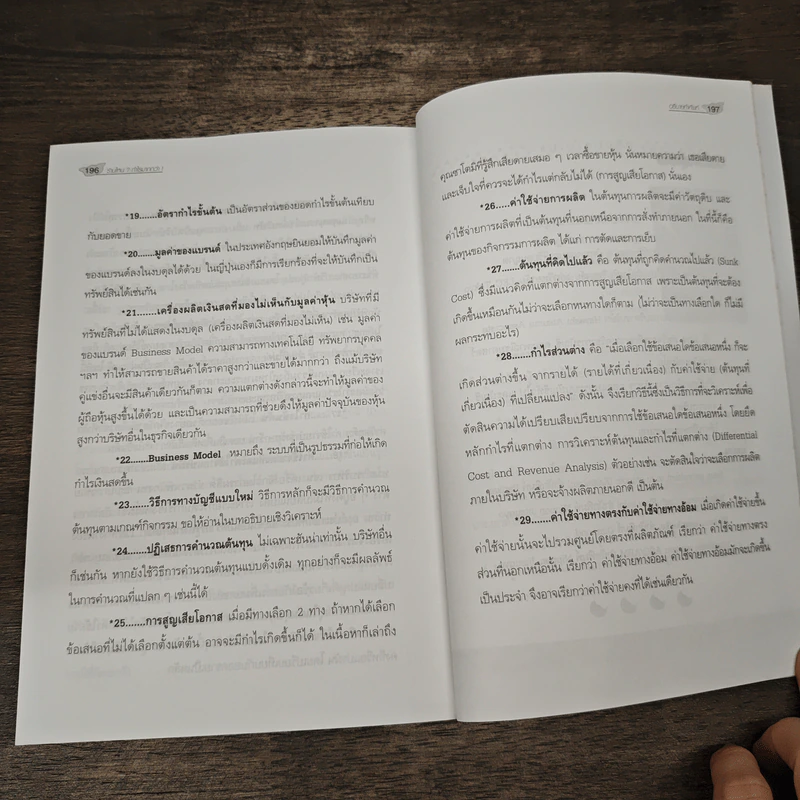 196
*19.......อัตรากำไรขั้นต้น เป็นอัตราส่วนของยอดกำไรขั้นต้นเทียบ
กับยอดขาย
*20.......มูลค่าของแบรนด์ ในประเทศอังกฤษยินยอมให้บันทึกมูลค่า
ของแบรนด์ลงในงบดุลได้ด้วย ในญี่ปุ่นเองก็มีการเรียกร้องที่จะให้บันทึกเป็น
ทรัพย์สินได้เช่นกัน
*21.......เครื่องผลิตเงินสดที่มองไม่เห็นกับมูลค่าหุ้น บริษัทที่มี
ทรัพย์สินที่ไม่ได้แสดงในงบดุล (เครื่องผลิตเงินสดที่มองไม่เห็น) เช่น มูลค่า
ของแบรนด์ Business Model ความสามารถทางเทคโนโลยี ทรัพยากรบุคคล
ฯลฯ ทำให้สามารถขายสินค้าได้ราคาสูงกว่าและขายได้มากกว่า ถึงแม้บริษัท
คู่แข่งอื่นจะมีสินค้าเดียวกันก็ตาม ความแตกต่างดังกล่าวนี้จะทำให้มูลค่าของ
ผู้ถือหุ้นสูงขึ้นได้ด้วย และเป็นความสามารถที่ช่วยดึงให้มูลค่าปัจจุบันของหุ้น
สูงกว่าบริษัทอื่นในธุรกิจเดียวกัน
*22.......Business Model หมายถึง ระบบที่เป็นรูปธรรมที่ก่อให้เกิด
กำไรเงินสดขึ้น
*23.......วิธีการทางบัญชีแบบใหม่ วิธีการหลักก็จะมีวิธีการคำนวณ
ต้นทุนตามเกณฑ์กิจกรรม ขอให้อ่านในบทอธิบายเชิงวิเคราะห์
*24.......ปฏิเสธการคำนวณต้นทุน ไม่เฉพาะฮันน่าเท่านั้น บริษัทอื่น
ก็เช่นกัน หากยังใช้วิธีการคำนวณต้นทุนแบบดั้งเดิม ทุกอย่างก็จะมีผลลัพธ์
ในการคำนวณที่แปลก ๆ เช่นนี้ได้
*25.......การสูญเสียโอกาส เมื่อมีทางเลือก 2 ทาง ถ้าหากได้เลือก
ข้อเสนอที่ไม่ได้เลือกตั้งแต่ต้น อาจจะมีกำไรเกิดขึ้นก็ได้ ในเนื้อหาก็เล่าถึง
197
คุณซาโตมิที่รู้สึกเสียดายเสมอ ๆ เวลาซื้อขายหุ้น นั่นหมายความว่า เธอเสียดาย
และเจ็บใจที่ควรจะได้กำไรแต่กลับไม่ได้ (การสูญเสียโอกาส) นั่นเอง
*26.......ค่าใช้จ่ายการผลิต ในต้นทุนการผลิตจะมีค่าวัตถุดิบ และ
ค่าใช้จ่ายการผลิตที่เป็นต้นทุนที่นอกเหนือจากการสั่งทำภายนอก ในที่นี้ก็คือ
ต้นทุนของกิจกรรมการผลิต ได้แก่ การตัดและการเย็บ
*27.......ต้นทุนที่คิดไปแล้ว คือ ต้นทุนที่ถูกคิดคำนวณไปแล้ว (Sunk
Cost) ซึ่งมีแนวคิดที่แตกต่างจากการสูญเสียโอกาส เพราะเป็นต้นทุนที่จะต้อง
เกิดขึ้นเหมือนกันไม่ว่าจะเลือกหนทางใดก็ตาม (ไม่ว่าจะเป็นทางเลือกใด ก็ไม่มี
ผลกระทบอะไร)
*28.......กำไรส่วนต่าง คือ "เมื่อเลือกใช้ข้อเสนอใดข้อเสนอหนึ่ง ก็จะ
เกิดส่วนต่างขึ้น จากรายได้ (รายได้ที่เกี่ยวเนื่อง) กับค่าใช้จ่าย (ต้นทุนที่
เกี่ยวเนื่อง) ที่เปลี่ยนแปลง" ดังนั้น จึงเรียกวิธีนี้ซึ่งเป็นวิธีการที่จะวิเคราะห์เพื่อ
ตัดสินความได้เปรียบเสียเปรียบจากการใช้ข้อเสนอใดข้อเสนอหนึ่ง โดยยึด
หลักกำไรที่แตกต่าง การวิเคราะห์ต้นทุนและกำไรที่แตกต่าง (Differential
Cost and Revenue Analysis) ตัวอย่างเช่น จะตัดสินใจว่าจะเลือกการผลิต
ภายในบริษัท หรือจะจ้างผลิตภายนอกดี เป็นต้น
*29.......ค่าใช้จ่ายทางตรงกับค่าใช้จ่ายทางอ้อม เมื่อเกิดค่าใช้จ่ายขึ้น
ค่าใช้จ่ายนั้นจะไปรวมศูนย์โดยตรงที่ผลิตภัณฑ์ เรียกว่า ค่าใช้จ่ายทางตรง
ส่วนที่นอกเหนือนั้น เรียกว่า ค่าใช้จ่ายทางอ้อม ค่าใช้จ่ายทางอ้อมมักจะเกิดขึ้น
เป็นประจำ จึงอาจเรียกว่าค่าใช้จ่ายคงที่ได้เช่นเดียวกัน